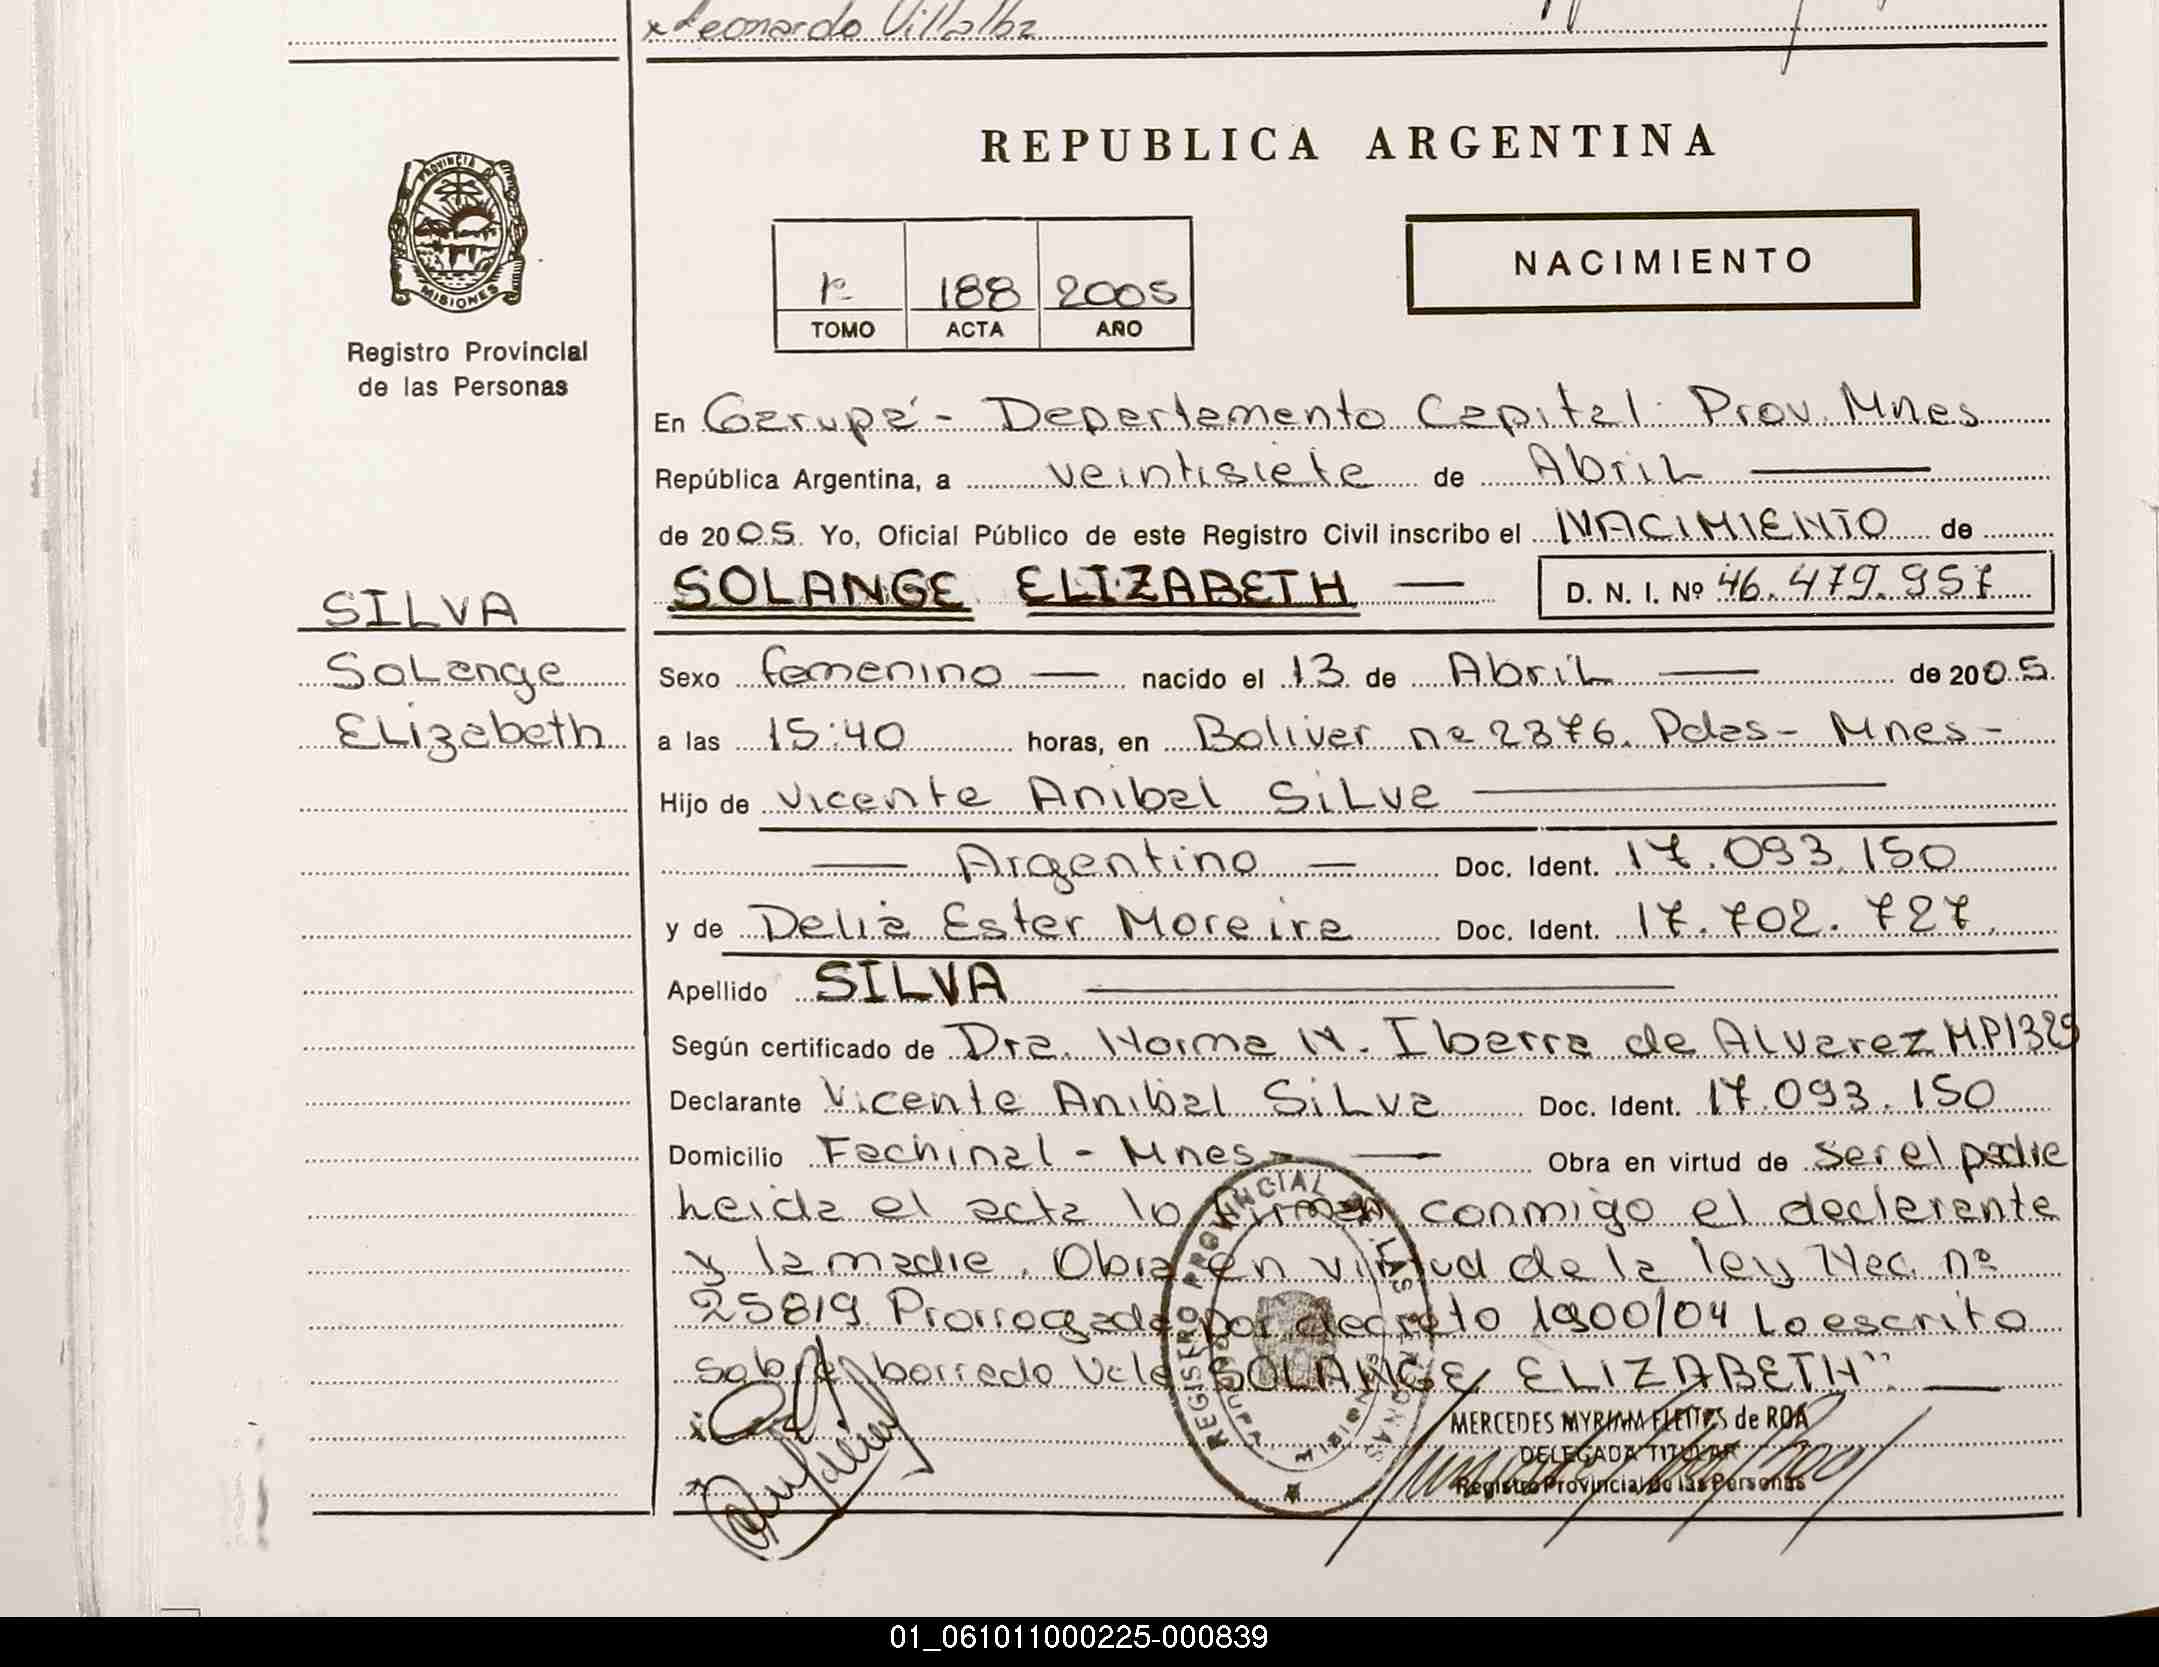 x Leonardo Villalba
PROVINCIA DE
MISIONES
Registro Provincial
de las Personas
REPUBLICA ARGENTINA
1º 188 2005
TOMO ACTA AÑO
NACIMIENTO
En Garupá - Departamento Capital. Prov. Mnes
República Argentina, a veintisiete de Abril
de 2005. Yo, Oficial Público de este Registro Civil inscribo el NACIMIENTO de
SOLANGE ELIZABETH — D. N. I. Nº 46.479.957
SILVA
Solange
Elizabeth
Sexo femenino — nacido el 13 de Abril — de 2005.
a las 15:40 horas, en Bolivar nº 2376. Pdas - Mnes -
Hijo de Vicente Anibal Silva —
— Argentino — Doc. Ident. 17.093.150
y de Delia Ester Moreira Doc. Ident. 17.702.727.
Apellido SILVA —
Según certificado de Dra. Norma N. Ibarra de Alvarez M.P1329
Declarante Vicente Anibal Silva Doc. Ident. 17.093.150
Domicilio Fachinal - Mnes - — Obra en virtud de ser el padre
Leida el acta lo firman conmigo el declarante
y la madre. Obra en virtud de la ley Nac. nº
25819 Prorrogada por decreto 1900/04 Lo escrito
sobre borrado Vale SOLANGE ELIZABETH". —
REGISTRO PROVINCIAL DE LAS PERSONAS
MISIONES
MERCEDES MYRIAM FLEITES de ROA
DELEGADA TITULAR
Registro Provincial de las Personas
01_061011000225-000839